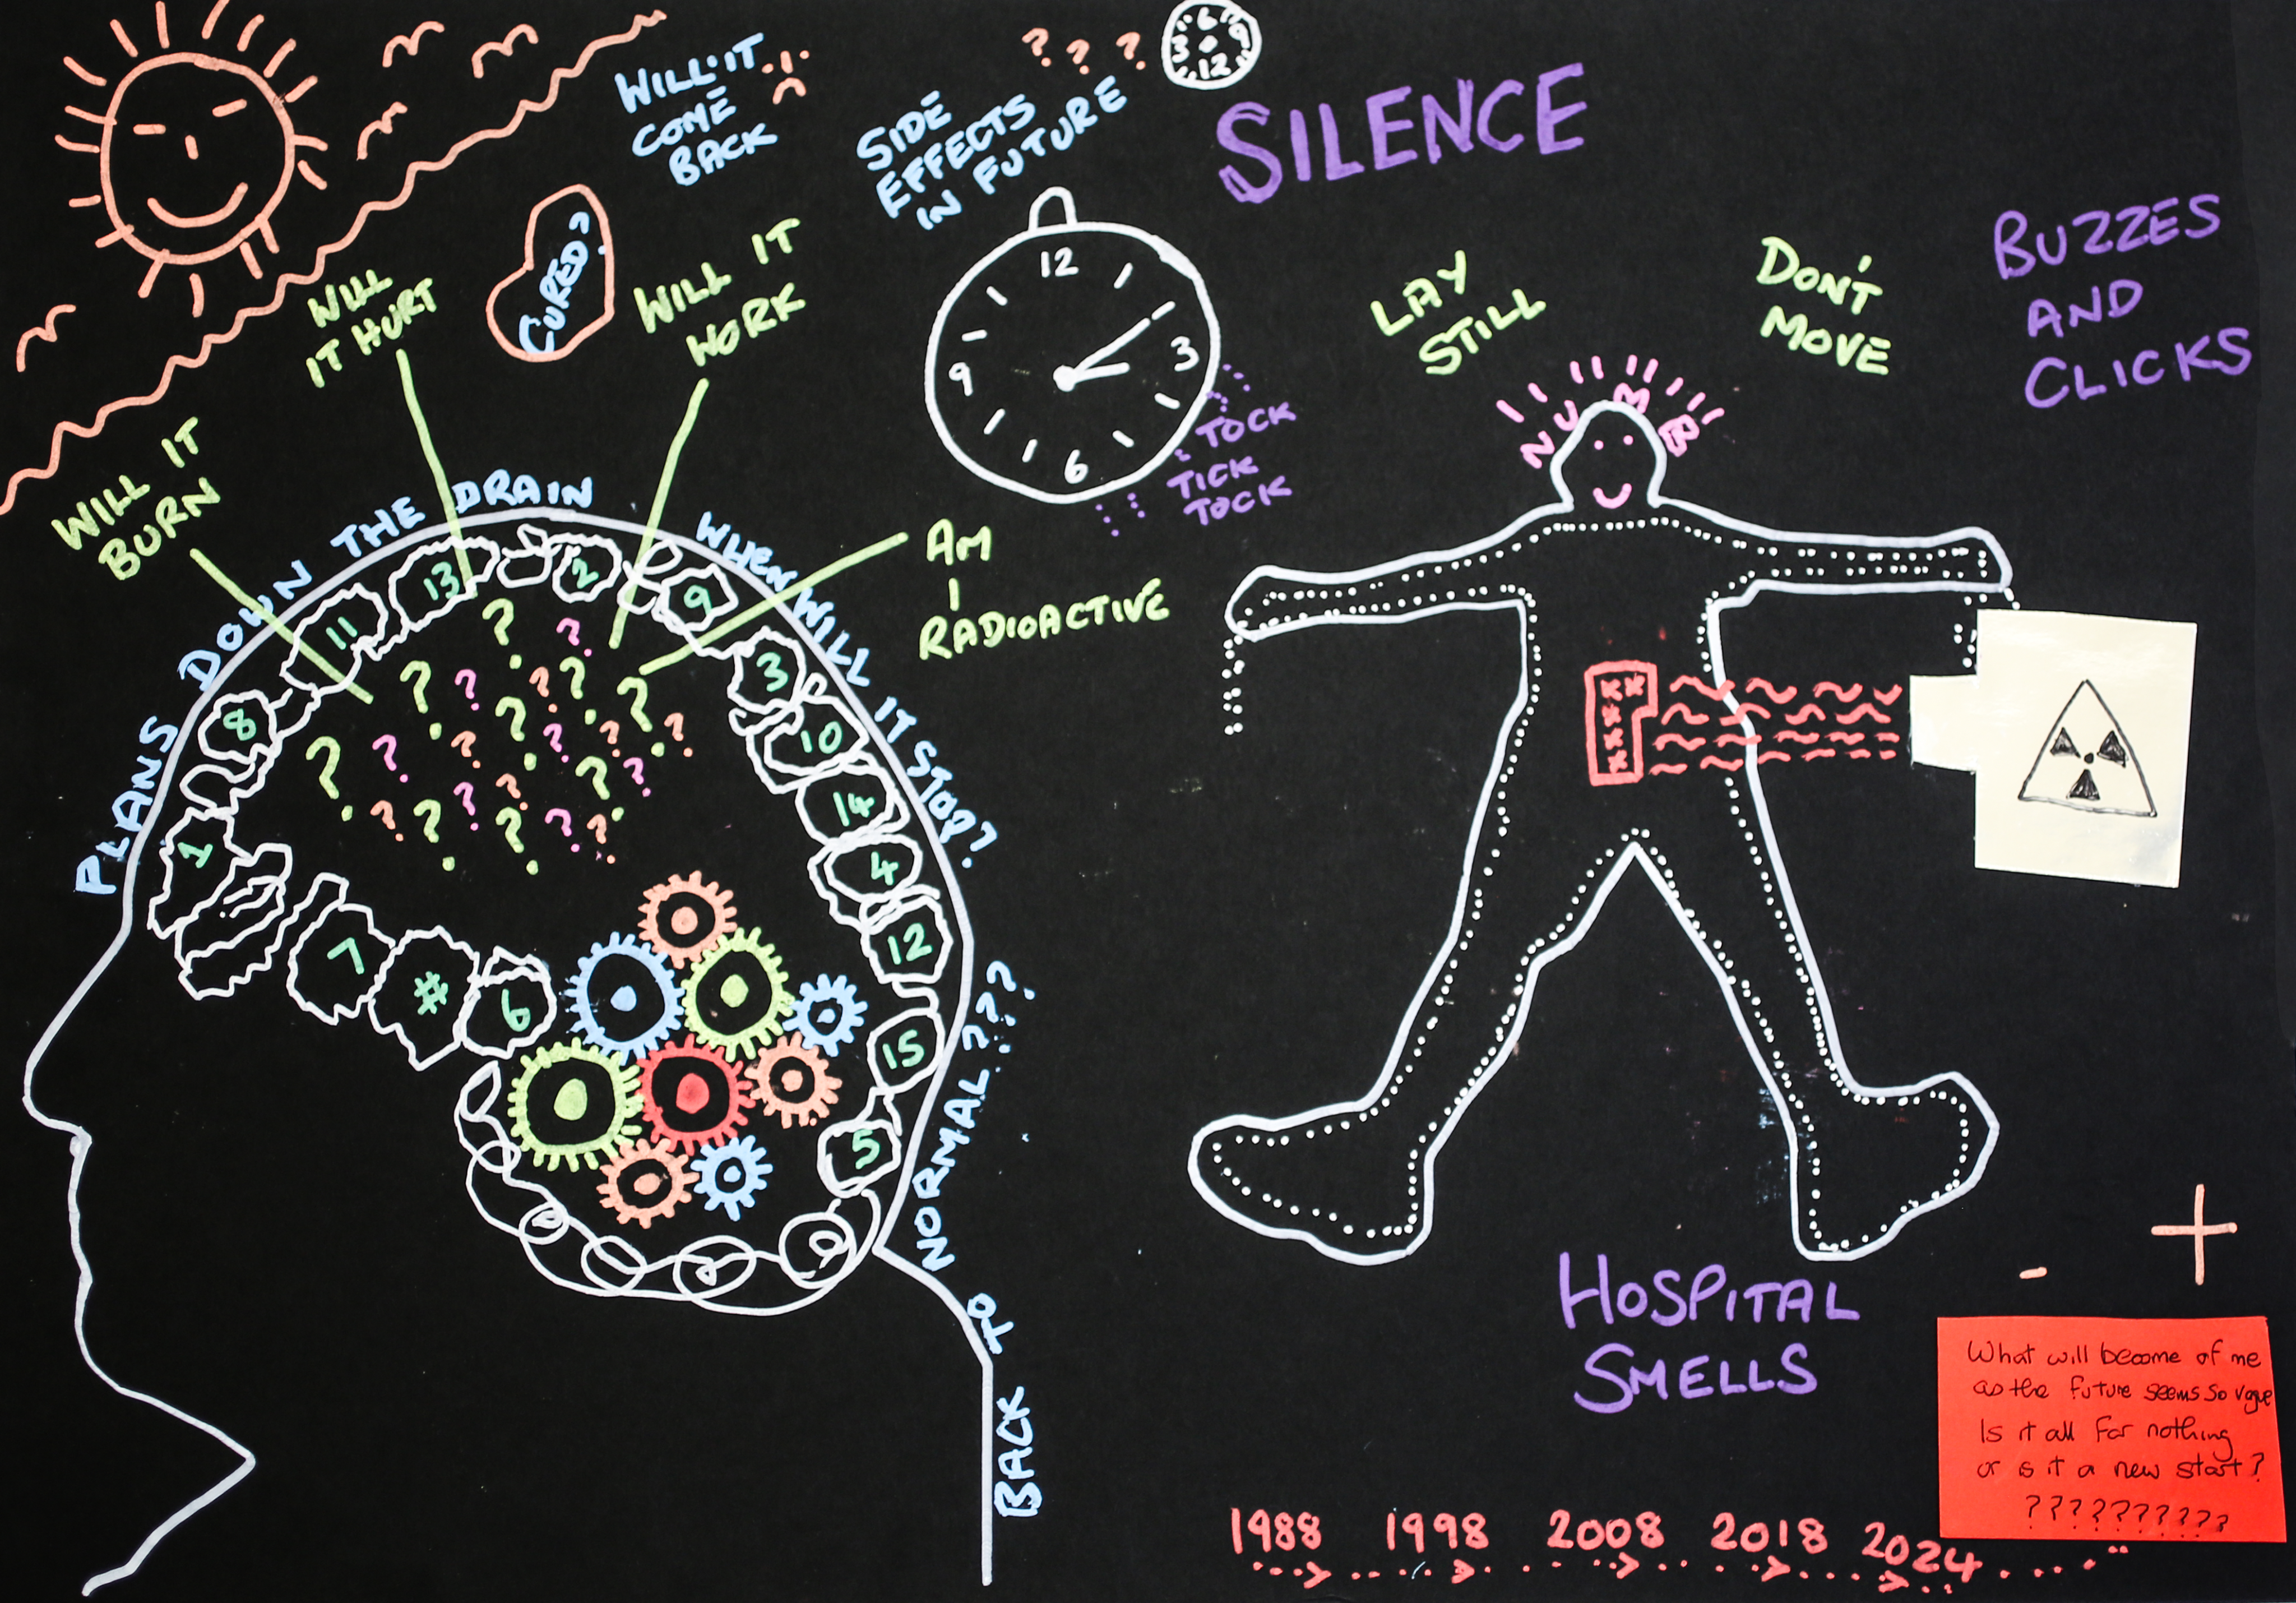 WILL IT
COME
BACK
SIDE
EFFECTS
IN FUTURE
? ? ?
6
3 9
12
SILENCE
CURED?
WILL
IT HURT
WILL IT
WORK
WILL IT
BURN
AM
I
RADIOACTIVE
12
9 3
6
TOCK
TICK
TOCK
LAY
STILL
DON'T
MOVE
BUZZES
AND
CLICKS
NUMB
PLANS DOWN THE DRAIN
WHEN WILL IT STOP?
BACK TO NORMAL???
1
8
11
13
2
9
3
10
14
4
12
15
5
7
#
6
HOSPITAL
SMELLS
- +
What will become of me
as the future seems so vague
Is it all for nothing
or is it a new start?
?????????
1988 1998 2008 2018 2024